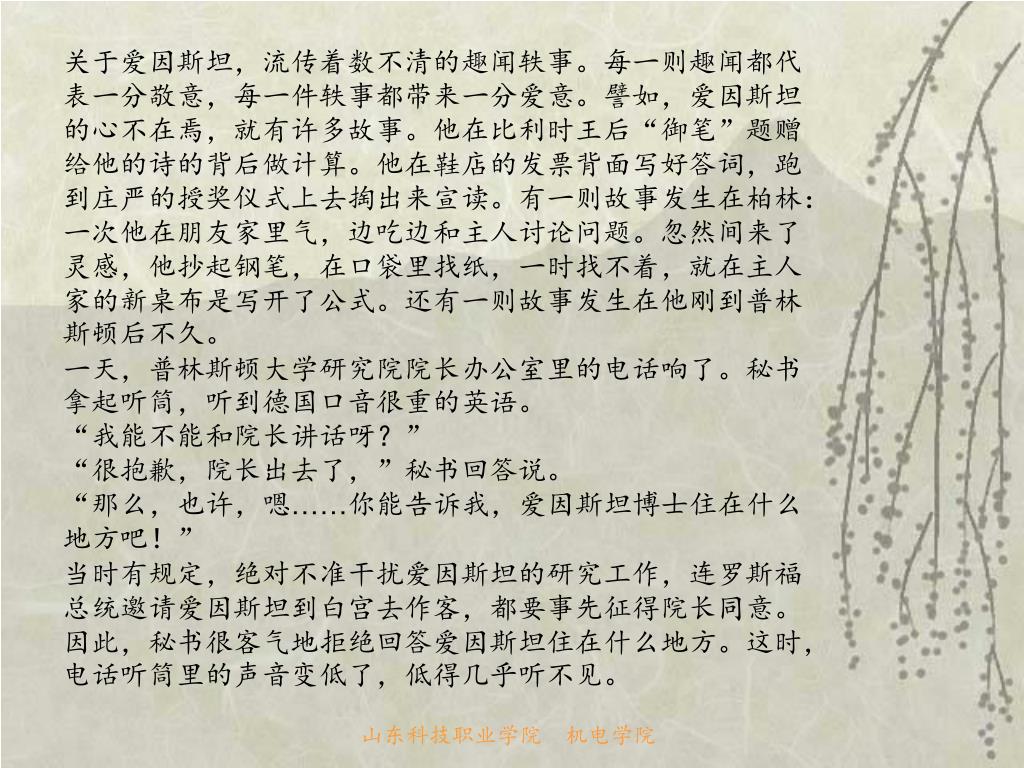 关于爱因斯坦，流传着数不清的趣闻轶事。每一则趣闻都代
表一分敬意，每一件轶事都带来一分爱意。譬如，爱因斯坦
的心不在焉，就有许多故事。他在比利时王后“御笔”题赠
给他的诗的背后做计算。他在鞋店的发票背面写好答词，跑
到庄严的授奖仪式上去掏出来宣读。有一则故事发生在柏林：
一次他在朋友家里气，边吃边和主人讨论问题。忽然间来了
灵感，他抄起钢笔，在口袋里找纸，一时找不着，就在主人
家的新桌布是写开了公式。还有一则故事发生在他刚到普林
斯顿后不久。
一天，普林斯顿大学研究院院长办公室里的电话响了。秘书
拿起听筒，听到德国口音很重的英语。
“我能不能和院长讲话呀？”
“很抱歉，院长出去了，”秘书回答说。
“那么，也许，嗯……你能告诉我，爱因斯坦博士住在什么
地方吧！”
当时有规定，绝对不准干扰爱因斯坦的研究工作，连罗斯福
总统邀请爱因斯坦到白宫去作客，都要事先征得院长同意。
因此，秘书很客气地拒绝回答爱因斯坦住在什么地方。这时，
电话听筒里的声音变低了，低得几乎听不见。
山东科技职业学院 机电学院